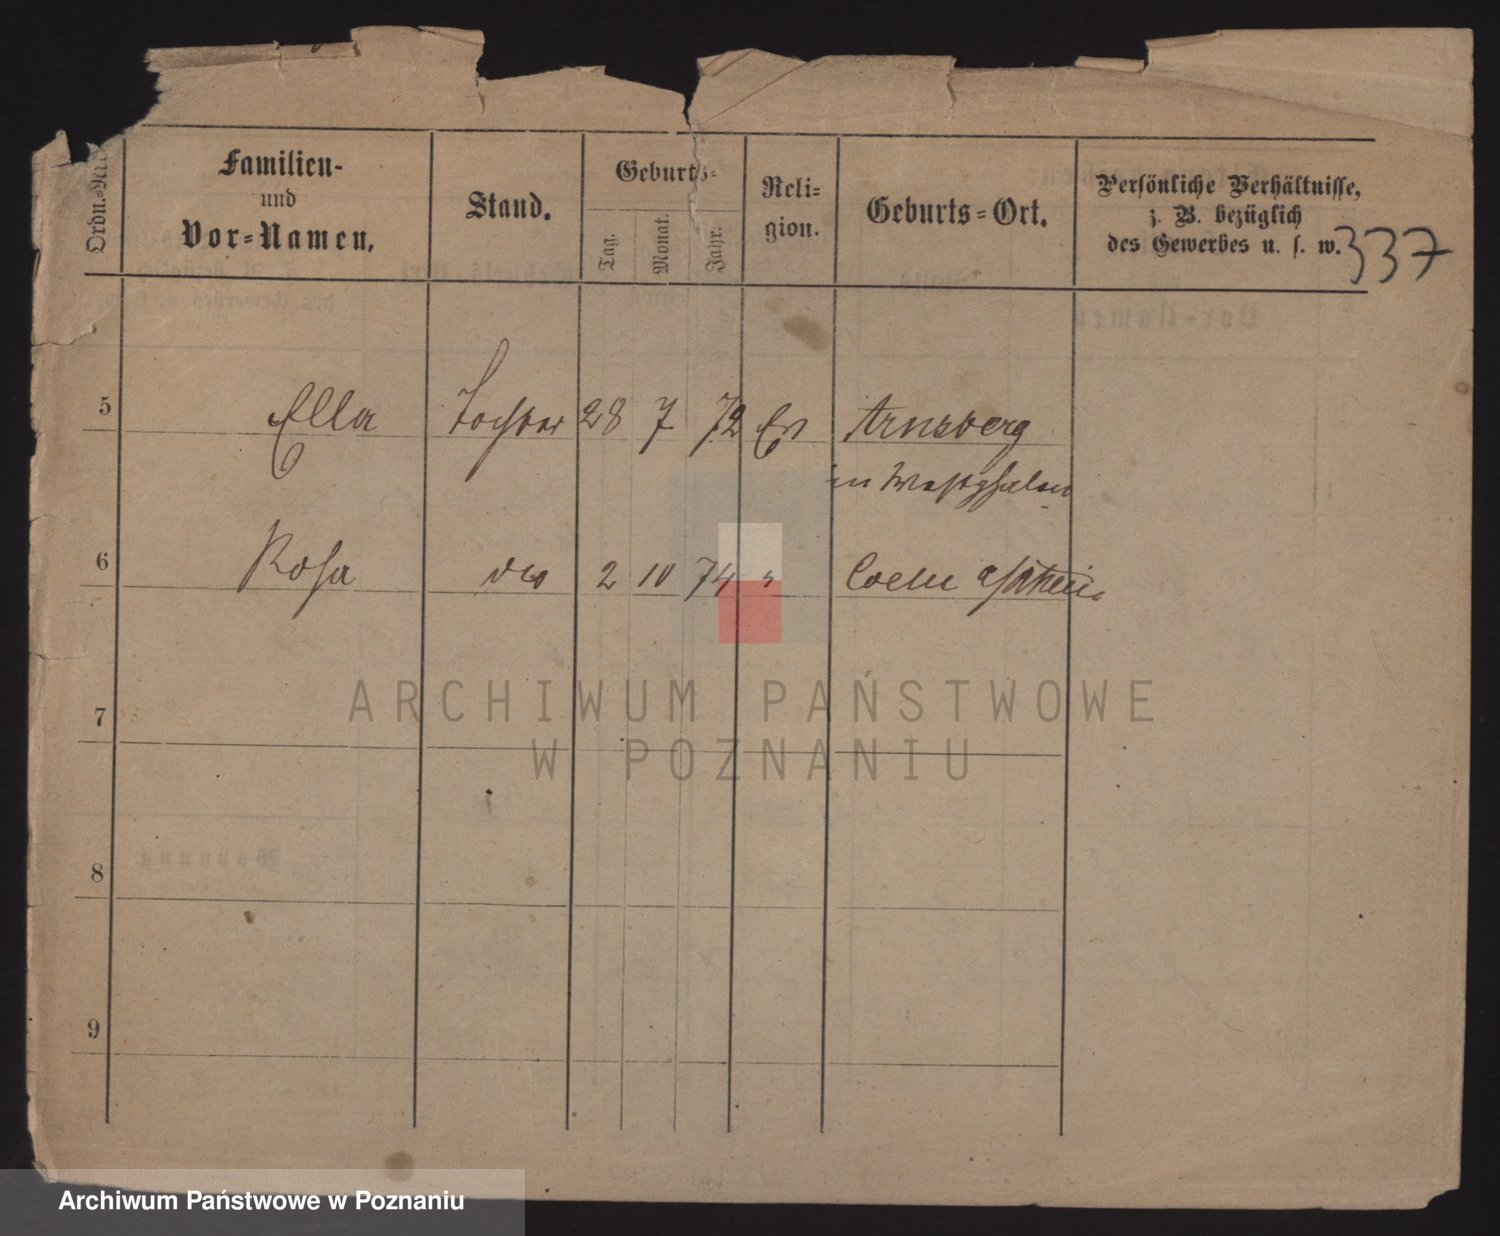 Ordn.-Nr.
Familien-
und
Vor-Namen.
Stand.
Geburts-
Tag.
Monat.
Jahr.
Reli-
gion.
Geburts-Ort.
Persönliche Verhältnisse,
z. B. bezüglich
des Gewerbes u. s. w.
337
5 Ella Tochter 28 7 72 Ev Arnsberg
in Westphalen
6 Rosa dto 2 10 74 " Coeln a/Rhein
7
8
9
ARCHIWUM PAŃSTWOWE
W POZNANIU
Archiwum Państwowe w Poznaniu